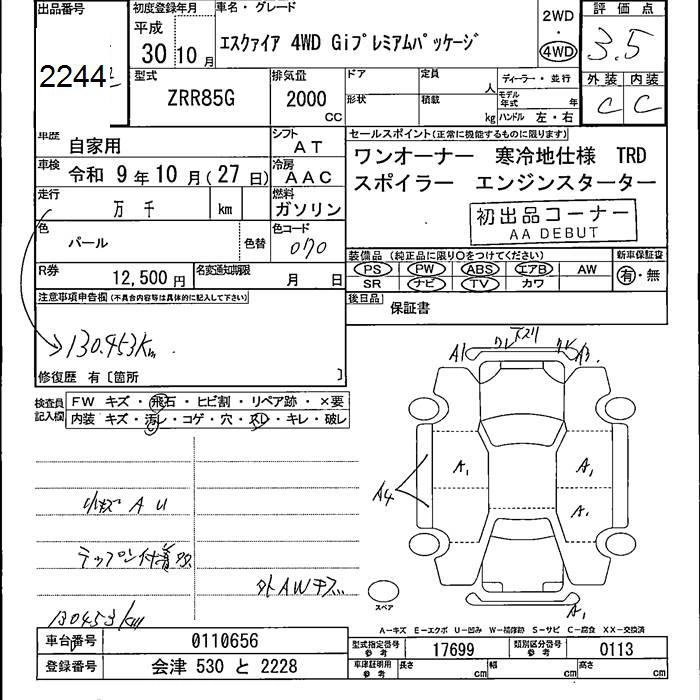 出品番号 初度登録年月 車名・グレード 2WD 評価点
平成
30 10月 エスクァイア 4WD Giプレミアムパッケージ 4WD 3.5
2244 型式 排気量 ドア 定員 人 ディーラー・並行 外装 内装
ZRR85G 2000 CC 形状 積載 kg モデル年式 年 C C
ハンドル 左・右
車歴 自家用 シフト AT セールスポイント(正常に機能するものに限ります)
車検 令和 9年10月(27日) 冷房 AAC ワンオーナー 寒冷地仕様 TRD
走行 万 千 km 燃料 ガソリン スポイラー エンジンスターター
色 パール 色替 色コード 070 初出品コーナー
AA DEBUT
装備品 (純正品に限り○をつけてください) 新車保証書
R券 12,500円 名変通知期限 月 日 PS PW ABS エアB AW 有・無
SR ナビ TV カワ
注意事項申告欄(不具合内容等は具体的に記入して下さい) 後日品 保証書
130.453Km
修復歴 有〔箇所 〕
検査員記入欄 FW キズ・飛石・ヒビ割・リペア跡・×要
内装 キズ・汚レ・コゲ・穴・スレ・キレ・破レ
A1 A3
A1 A1
A4 A1
小キズ A U
外AWキズ
A1
スペア
130453km
A-キズ E-エクボ U-凹み W-補修跡 S-サビ C-腐食 XX-交換済
車台番号 0110656 型式指定番号 参考 17699 類別区分番号 参考 0113
登録番号 会津 530 と 2228 車庫証明用 参考 長さ cm 幅 cm 高さ cm